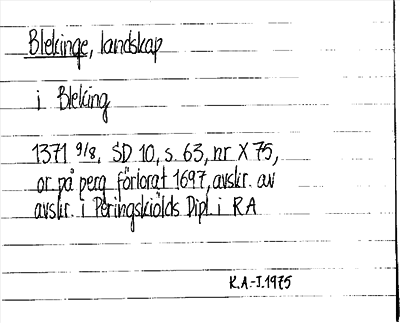 Blekinge, landskap
i Bleking
1371 9/8, SD 10, s. 63, nr X 75,
or på perg förlorat 1697, avskr. av
avskr. i Peringskiölds Dipl. i RA
K.A.-J. 1975